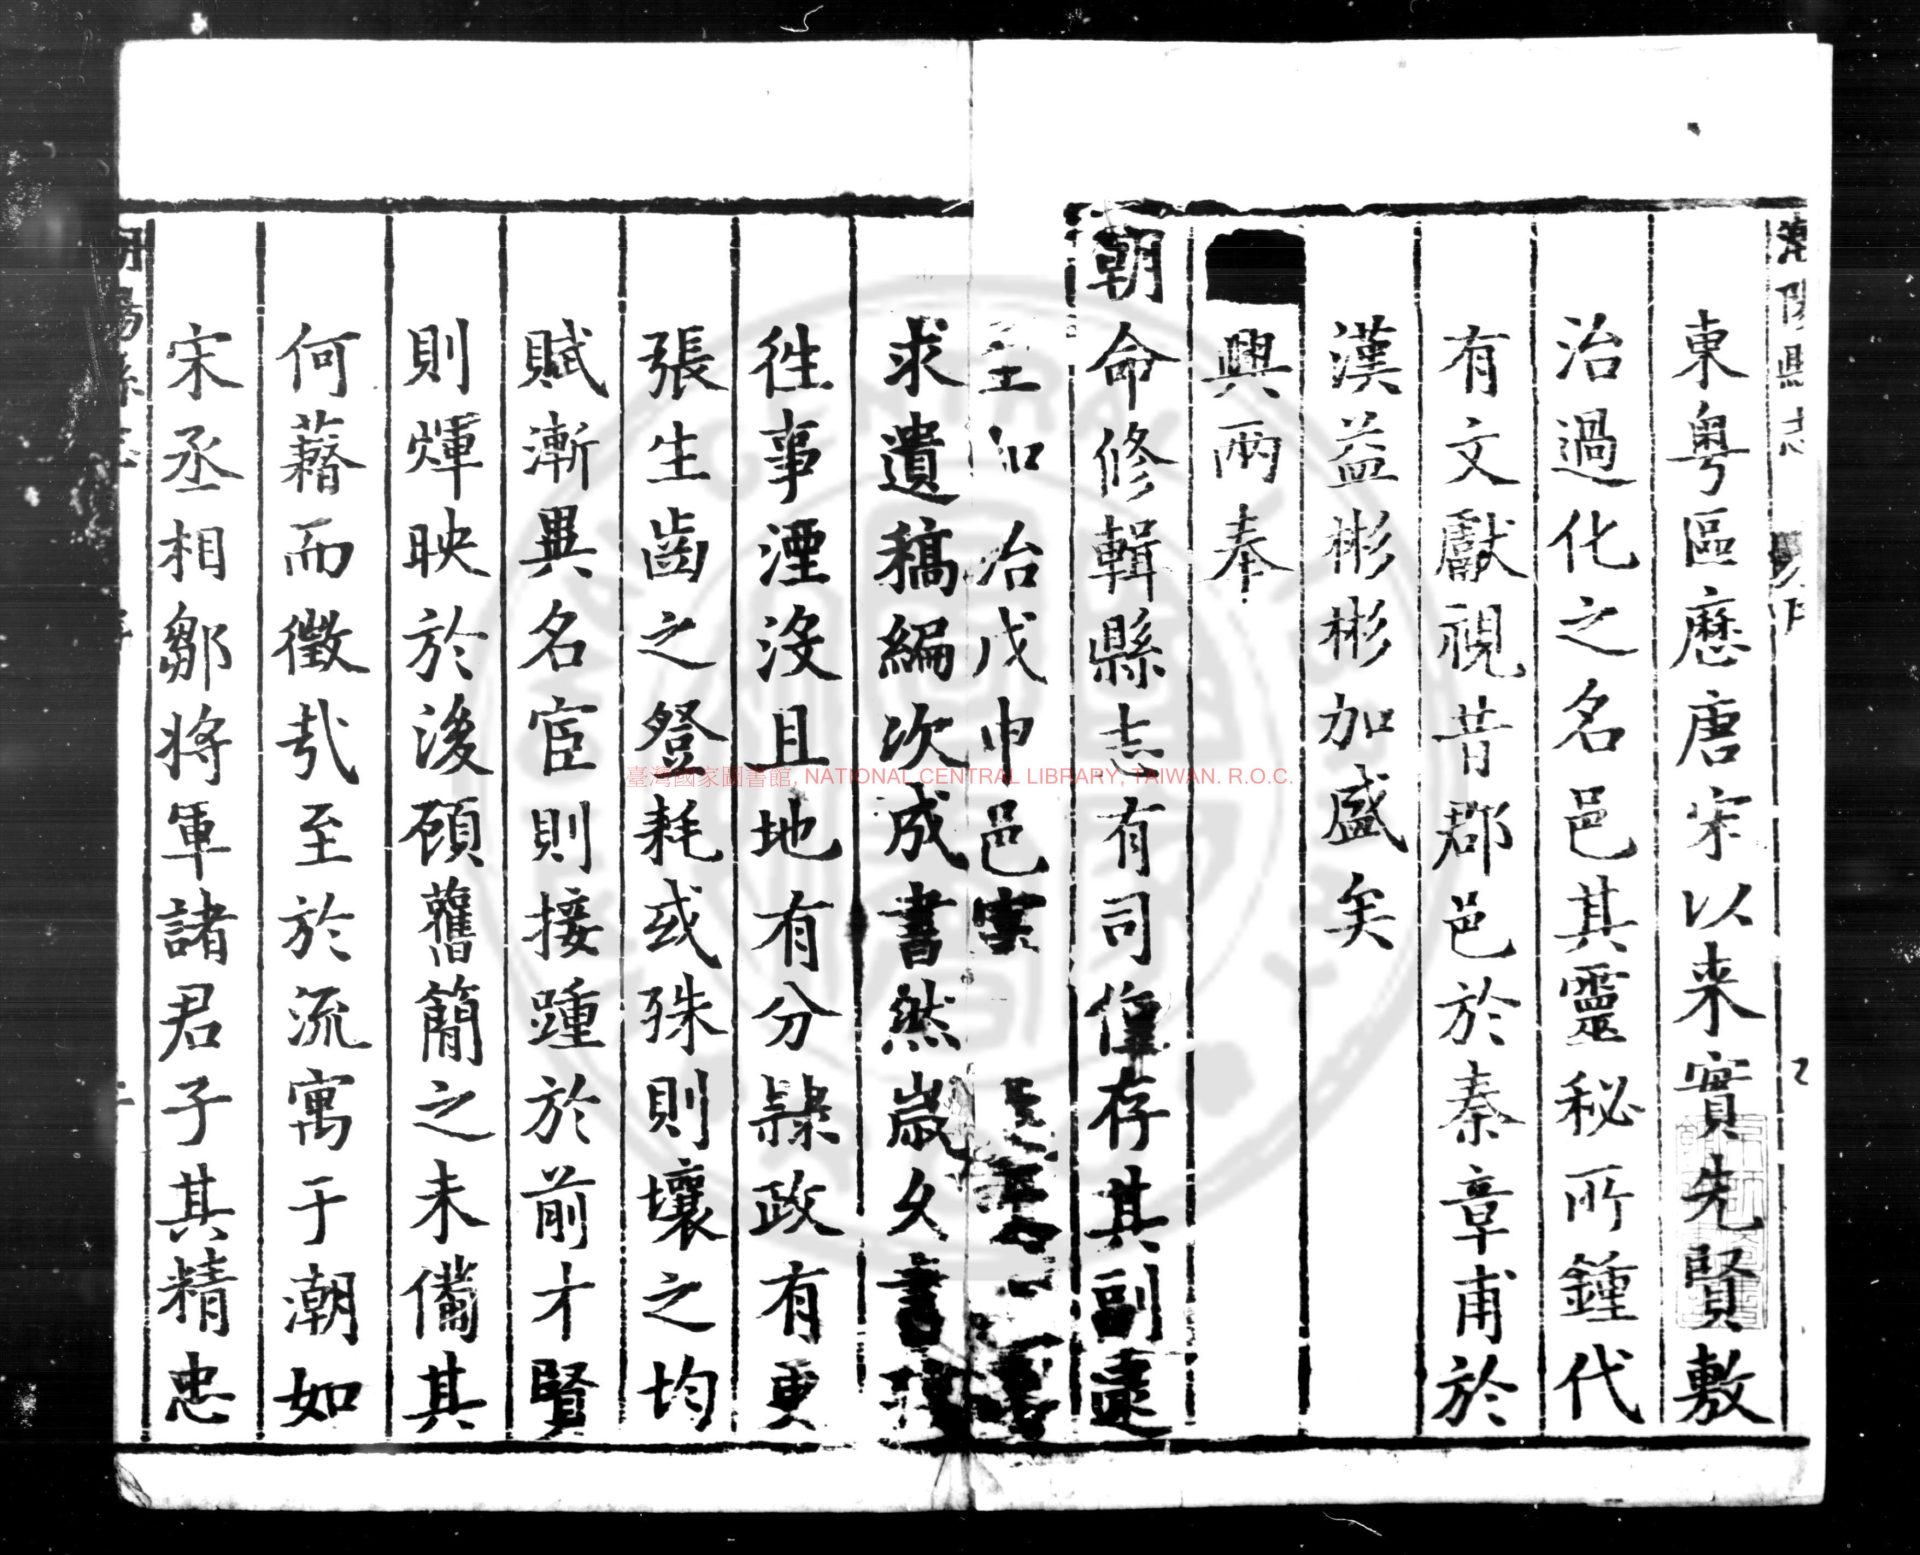 東粤區歷唐宋以来實先賢敷
治過化之名邑其靈秘所鍾代
有文獻視昔郡邑於秦章甫於
漢益彬彬加盛矣
興兩奉
朝命修輯縣志有司僅存其副逮
治戊申邑
求遺稿編次成書然嵗久書
徃事湮没且地有分隷政有更
張生齒之登耗或殊則壤之均
賦漸異名宦則接踵於前才賢
則煇映於後顧舊簡之未備其
何藉而徵㢤至於流寓于潮如
宋丞相鄒將軍諸君子其精忠
臺灣國家圖書館, NATIONAL CENTRAL LIBRARY, TAIWAN. R.O.C.